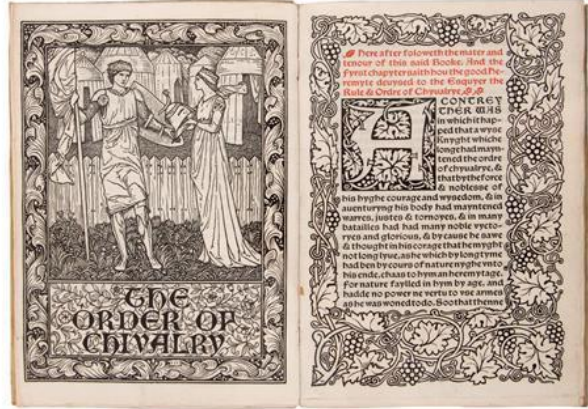 THE
ORDER OF
CHIVALRY
Here after foloweth the mater and
tenour of this said Booke. And the
fyrst chapyter saith hou the good He-
remyte deuysed to the Esquyer the
Rule & Ordre of Chyualrye
A CONTREY
THER WAS
in which it hap-
ped that a wyse
Knyght whiche
longe had mayn-
tened the ordre
of chyualrye, &
that by the force
& noblesse of
his hyghe courage and wysedom, & in
auenturyng his body had mayntened
warres, justes & tornoyes, & in many
batailles had had many noble vycto-
ryes and glorious, & by cause he sawe
& thought in his corage that he myght
not long lyue, as he which by long tyme
had ben by cours of nature nyghe vnto
his ende, chaas to hym an heremytage.
For nature faylled in hym by age, and
hadde no power ne vertu to vse armes
as he was woned to do. Soo that thenne